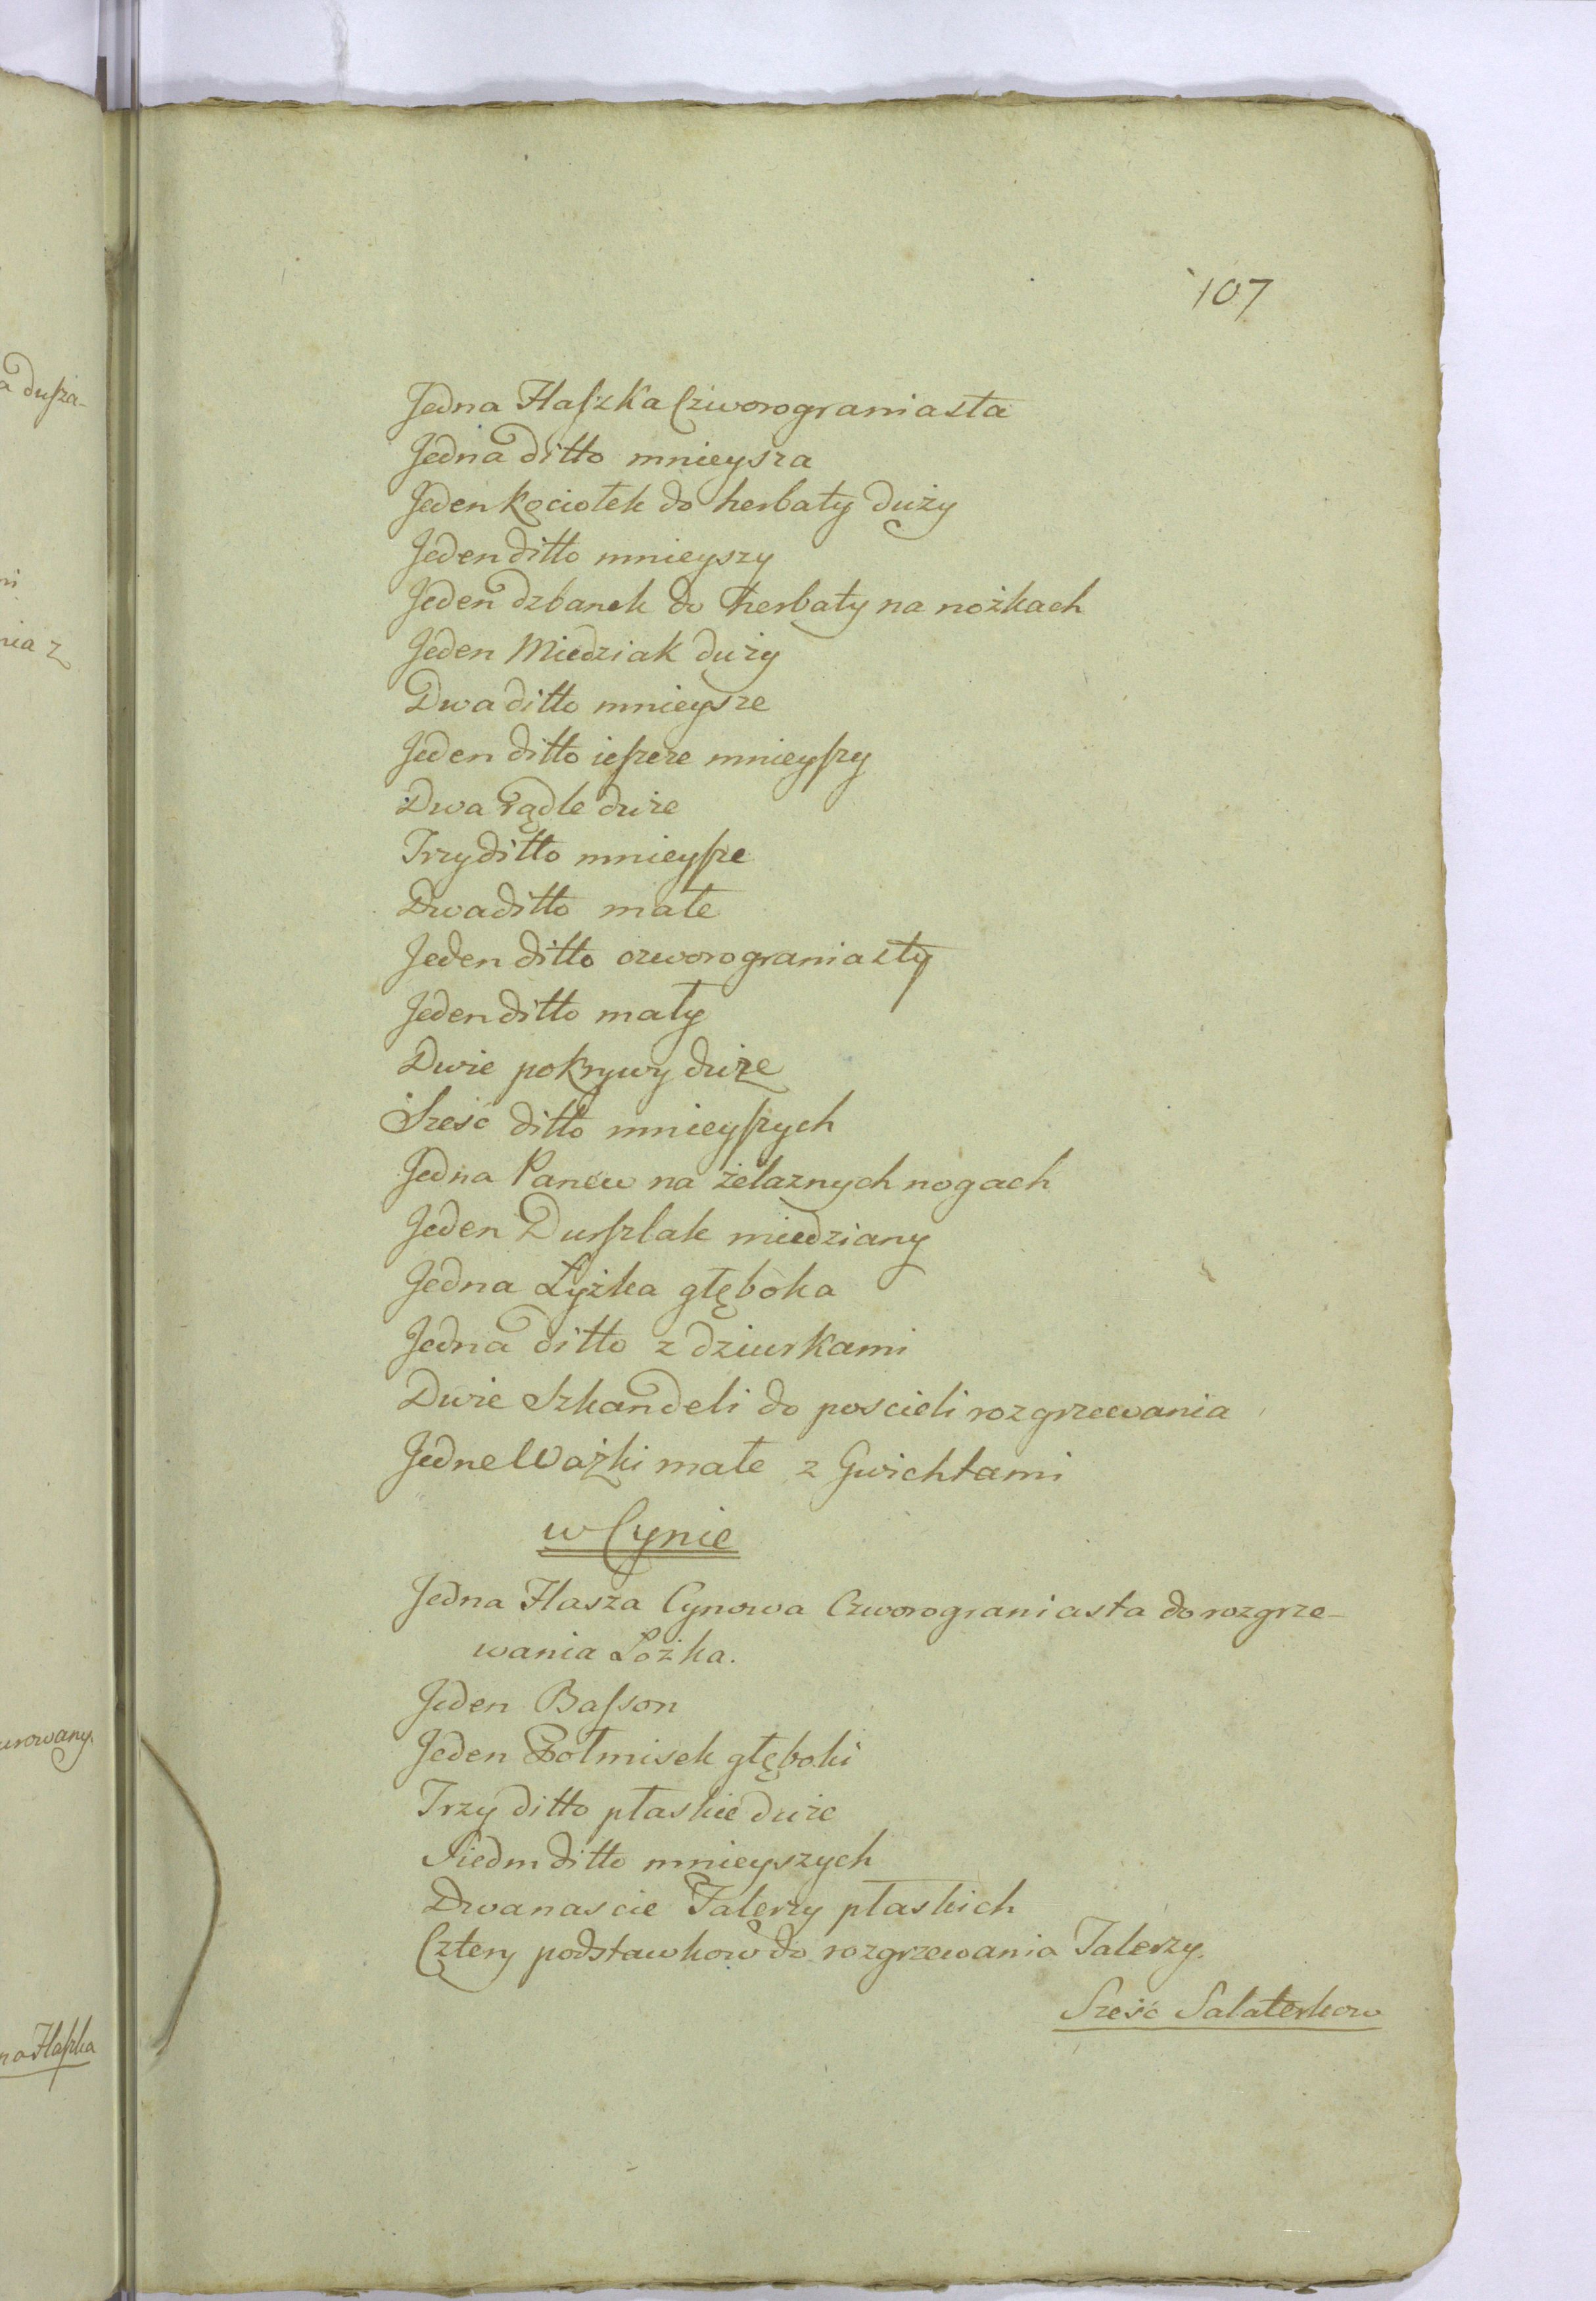 107
Jedna Flaszka Czworograniasta
Jedna ditto mnieysza
Jeden kociołek do herbaty duży
Jeden ditto mnieyszy
Jeden dzbanek do herbaty na nożkach
Jeden Miedziak duży
Dwa ditto mnieysze
Jeden ditto ieszcze mnieyszy
Dwa rądle duże
Trzy ditto mnieysze
Dwa ditto małe
Jeden ditto czworograniasty
Jeden ditto mały
Dwie pokrywy duże
Sześć ditto mnieyszych
Jedna Panew na żelaznych nogach
Jeden Durszlak miedziany
Jedna Łyżka głęboka
Jedna ditto z dziurkami
Dwie Szkandeli do poscieli rozgrzewania
Jedne Ważki małe z Gwichtami
w Cynie
Jedna Flasza Cynowa Czworograniasta do rozgrze-
wania Łożka.
Jeden Basson
Jeden Połmisek głęboki
Trzy ditto płaskie duże
Siedm ditto mnieyszych
Dwanascie Talerzy płaskich
Cztery podstawkow do rozgrzewania Talerzy.
Sześć Salaterkow
a dusza-
ni
nia z
urowany.
na Flaszka